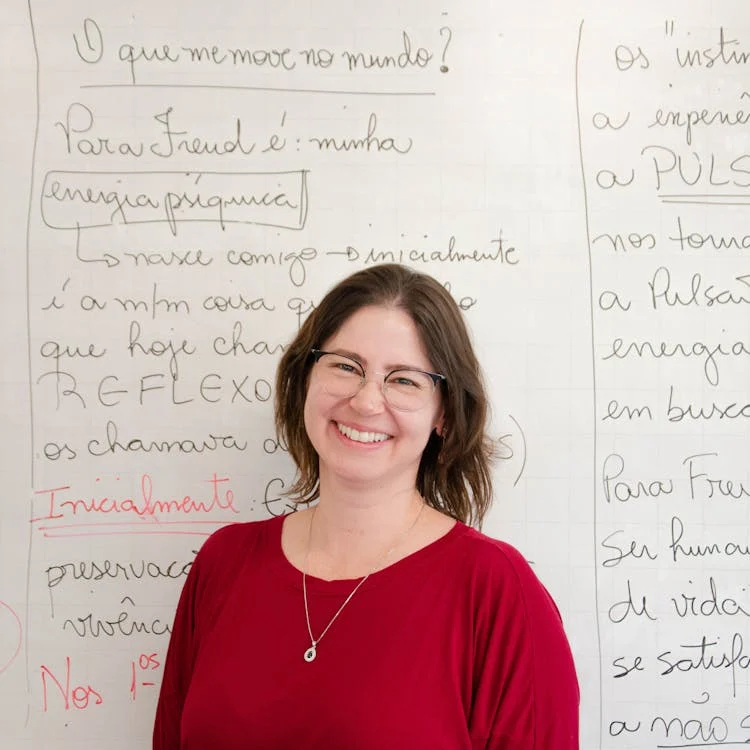 O que me move no mundo?
Para Freud é: minha
energia psíquica
nasce comigo → inicialmente
é a m/m coisa
que hoje
REFLEXO
os chamava
Inicialmente:
preservaç
vivênc
Nos 1os
os "instin
a experiê
a PULS
nos torna
a Pulsã
energia
em busc
Para Freu
Ser human
de vida
se satisfa
a não s